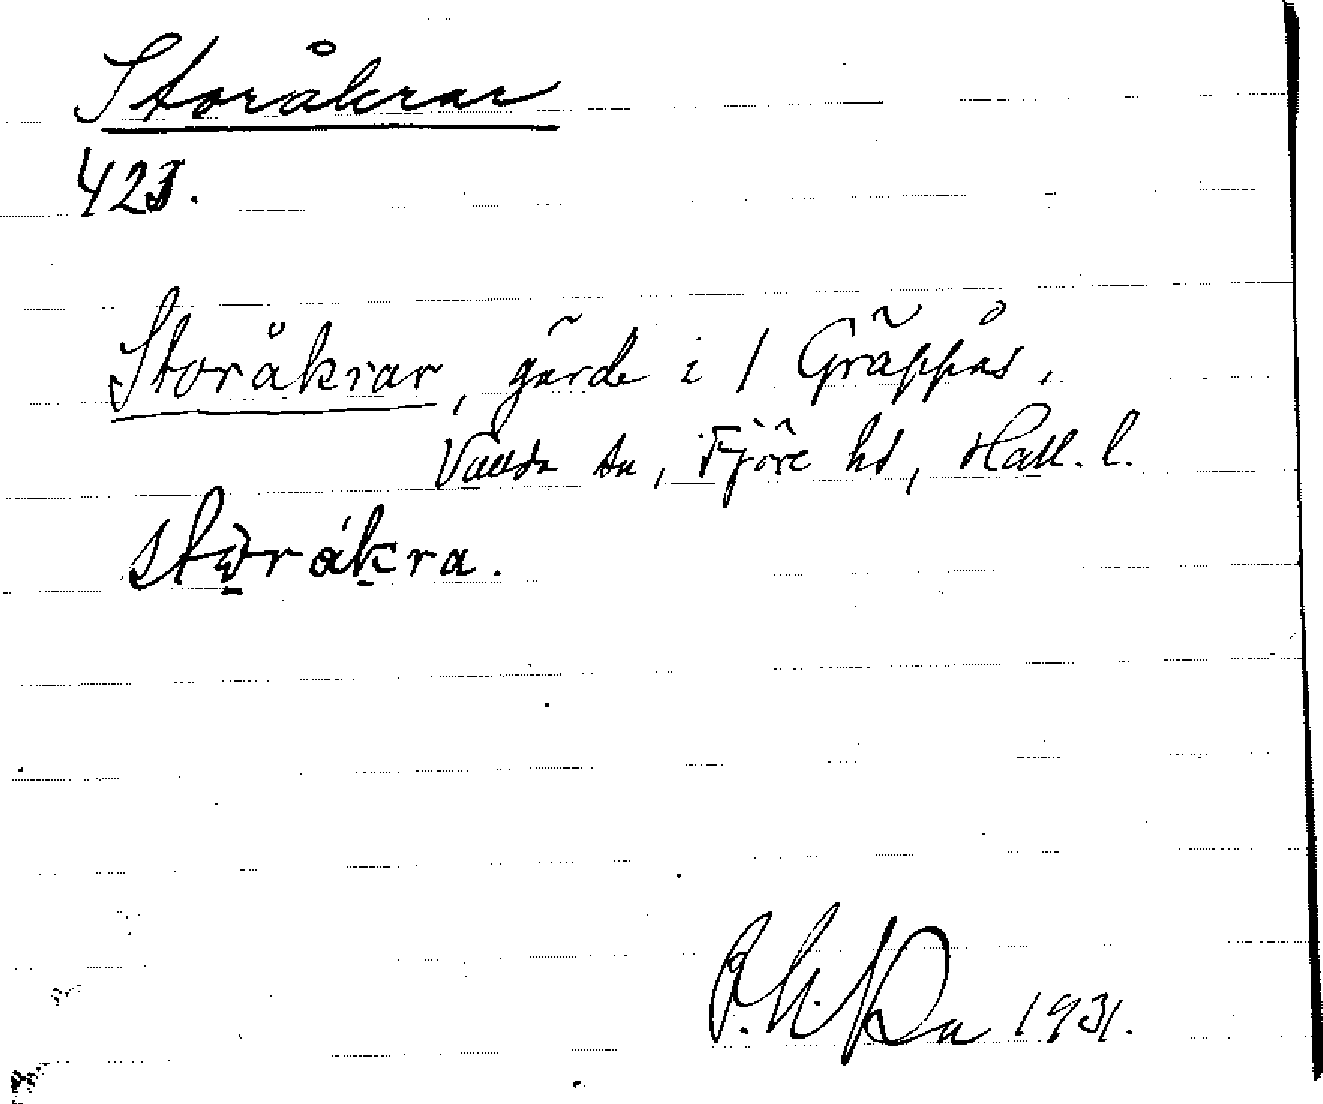 Storåkrar
423.
Storåkrar, gärde i 1 Gräppås,
Vallda sn, Fjäre hd, Hall. l.
storåkra.
1931.